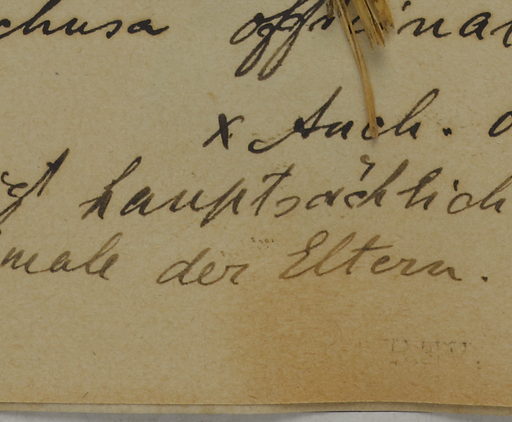 chusa officinal
x Anch. o
igt hauptsächlich
male der Eltern.